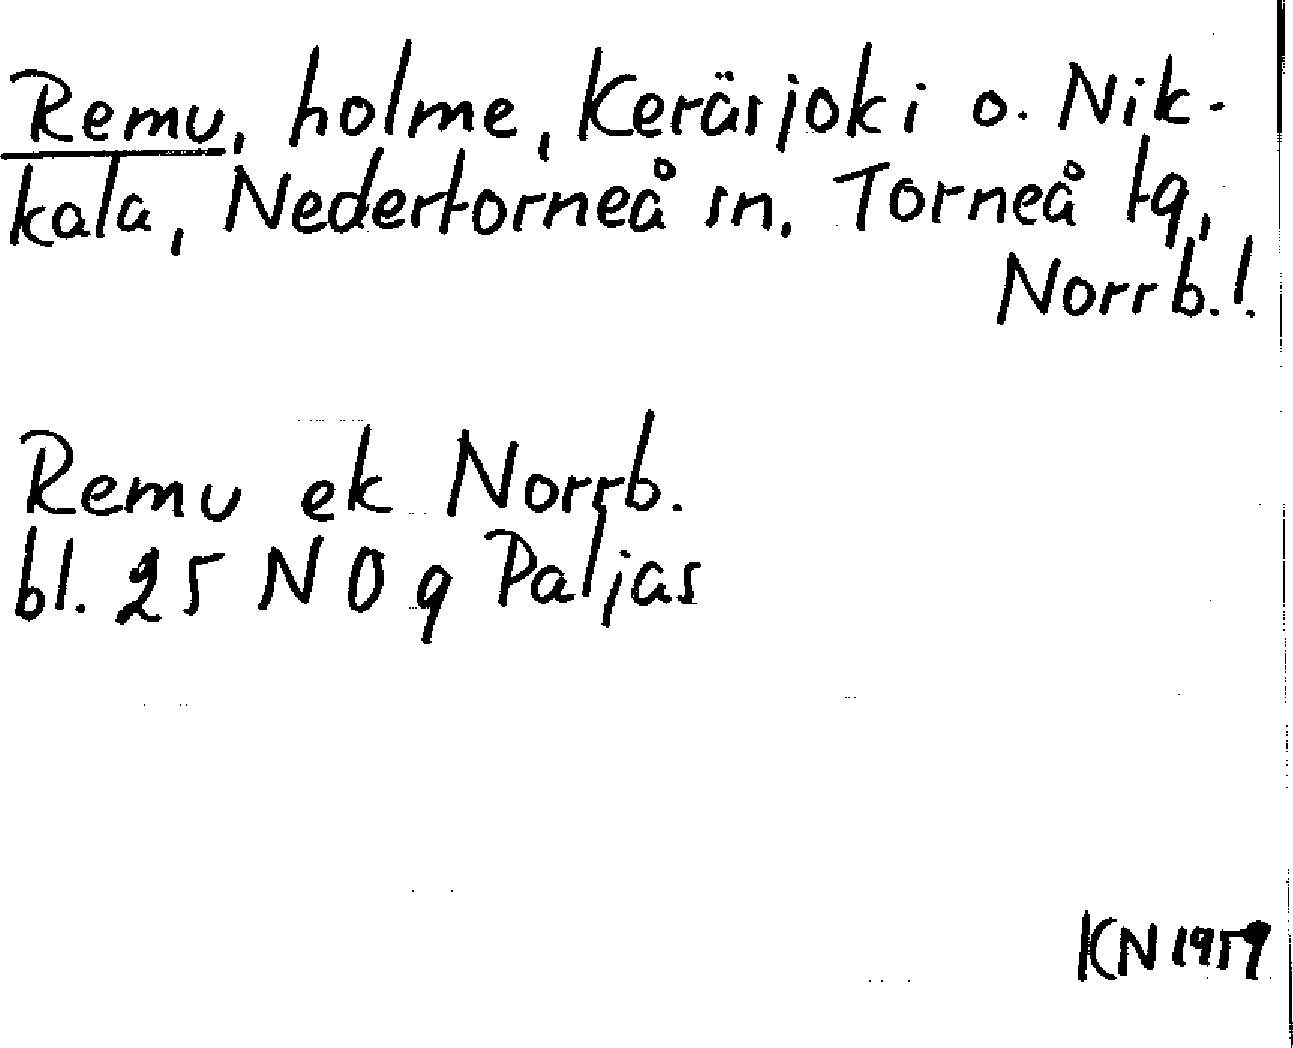 Remu, holme, Keräsjoki o. Nik-
kala, Nedertorneå sn. Torneå tg,
Norrb. l.
Remu ek Norrb.
bl. 25 NO g Paljas
KN 1959